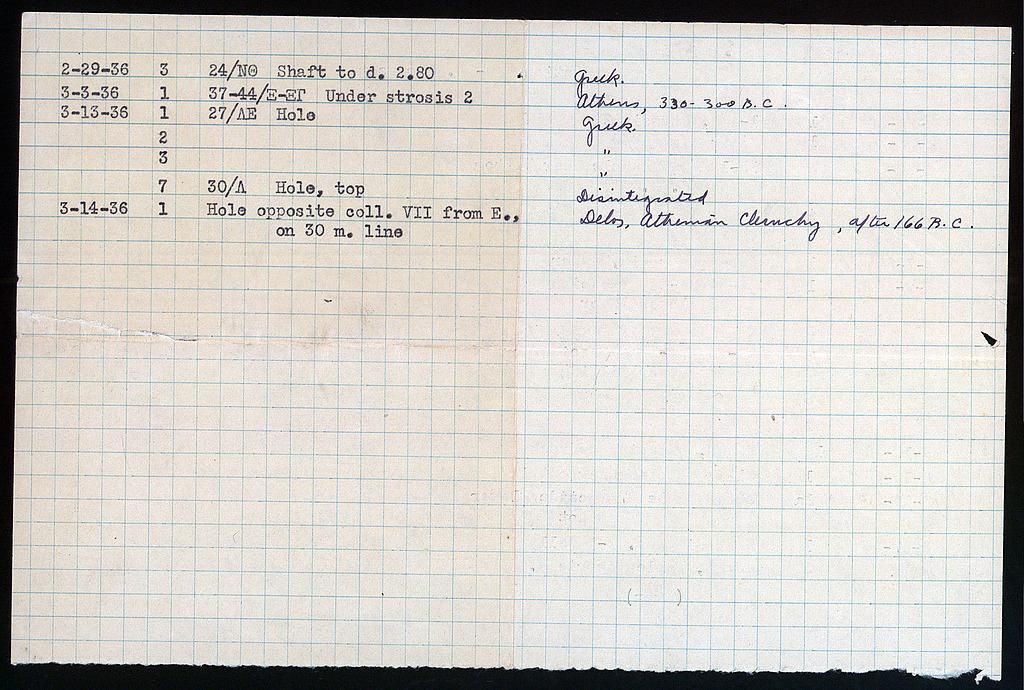 2-29-36 3 24/ΝΘ Shaft to d. 2.80 Greek.
3-3-36 1 37-44/Ε-ΕΓ Under strosis 2 Athens, 330-300 B.C.
3-13-36 1 27/ΛΕ Hole Greek.
2 "
3 "
7 30/Λ Hole, top Disintegrated
3-14-36 1 Hole opposite coll. VII from E., Delos, Athenian Cleruchy, after 166 B.C.
on 30 m. line